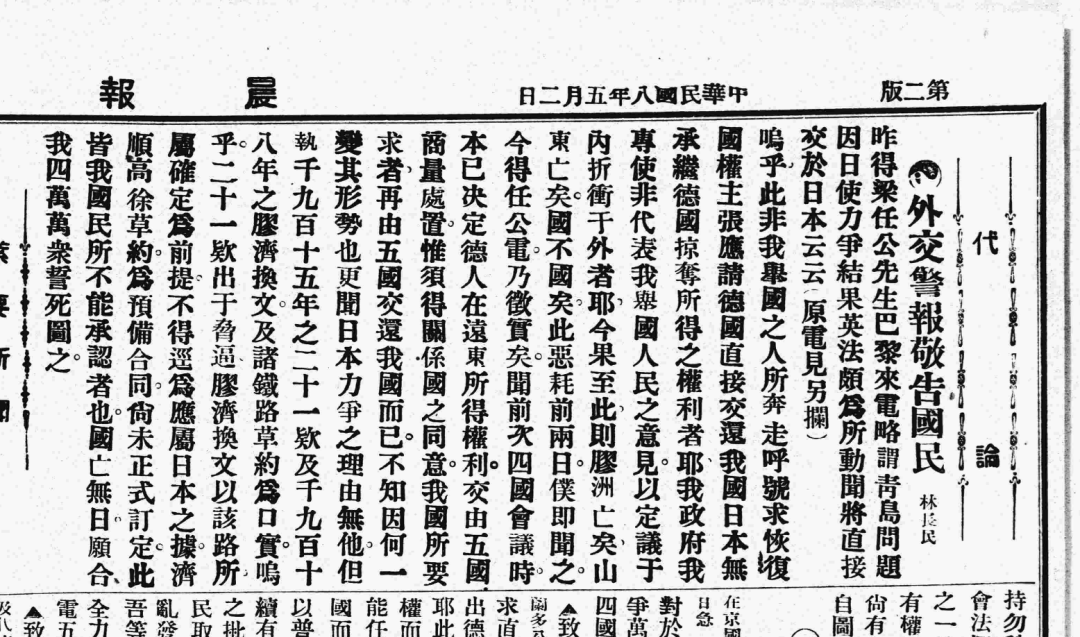 第二版
中華民國八年五月二日
晨報
代論
外交警報敬告國民
林長民
昨得梁任公先生巴黎來電略謂青島問題
因日使力爭結果英法頗爲所動聞將直接
交於日本云云(原電見另攔)
嗚乎此非我舉國之人所奔走呼號求恢復
國權主張應請德國直接交還我國日本無
承繼德國掠奪所得之權利者耶我政府我
專使非代表我舉國人民之意見以定議于
內折衝于外者耶今果至此則膠洲亡矣山
東亡矣國不國矣此惡耗前兩日僕即聞之
今得任公電乃徵實矣聞前次四國會議時
本已決定德人在遠東所得權利交由五國
商量處置惟須得關係國之同意我國所要
求者再由五國交還我國而已不知因何一
變其形勢也更聞日本力爭之理由無他但
執千九百十五年之二十一欵及千九百十
八年之膠濟換文及諸鐵路草約爲口實嗚
乎二十一欵出于脅逼膠濟換文以該路所
屬確定爲前提不得逕爲應屬日本之據濟
順高徐草約爲預備合同尙未正式訂定此
皆我國民所不能承認者也國亡無日願合
我四萬萬衆誓死圖之
持勿
會法
之一
有權
尙有
自圖
在京
日急
對於
爭萬
四國
▲致
求直
出德
耶此
權而
能任
國而
以普
續有
之批
民取
亂發
吾等
全力
▲致
電五
要